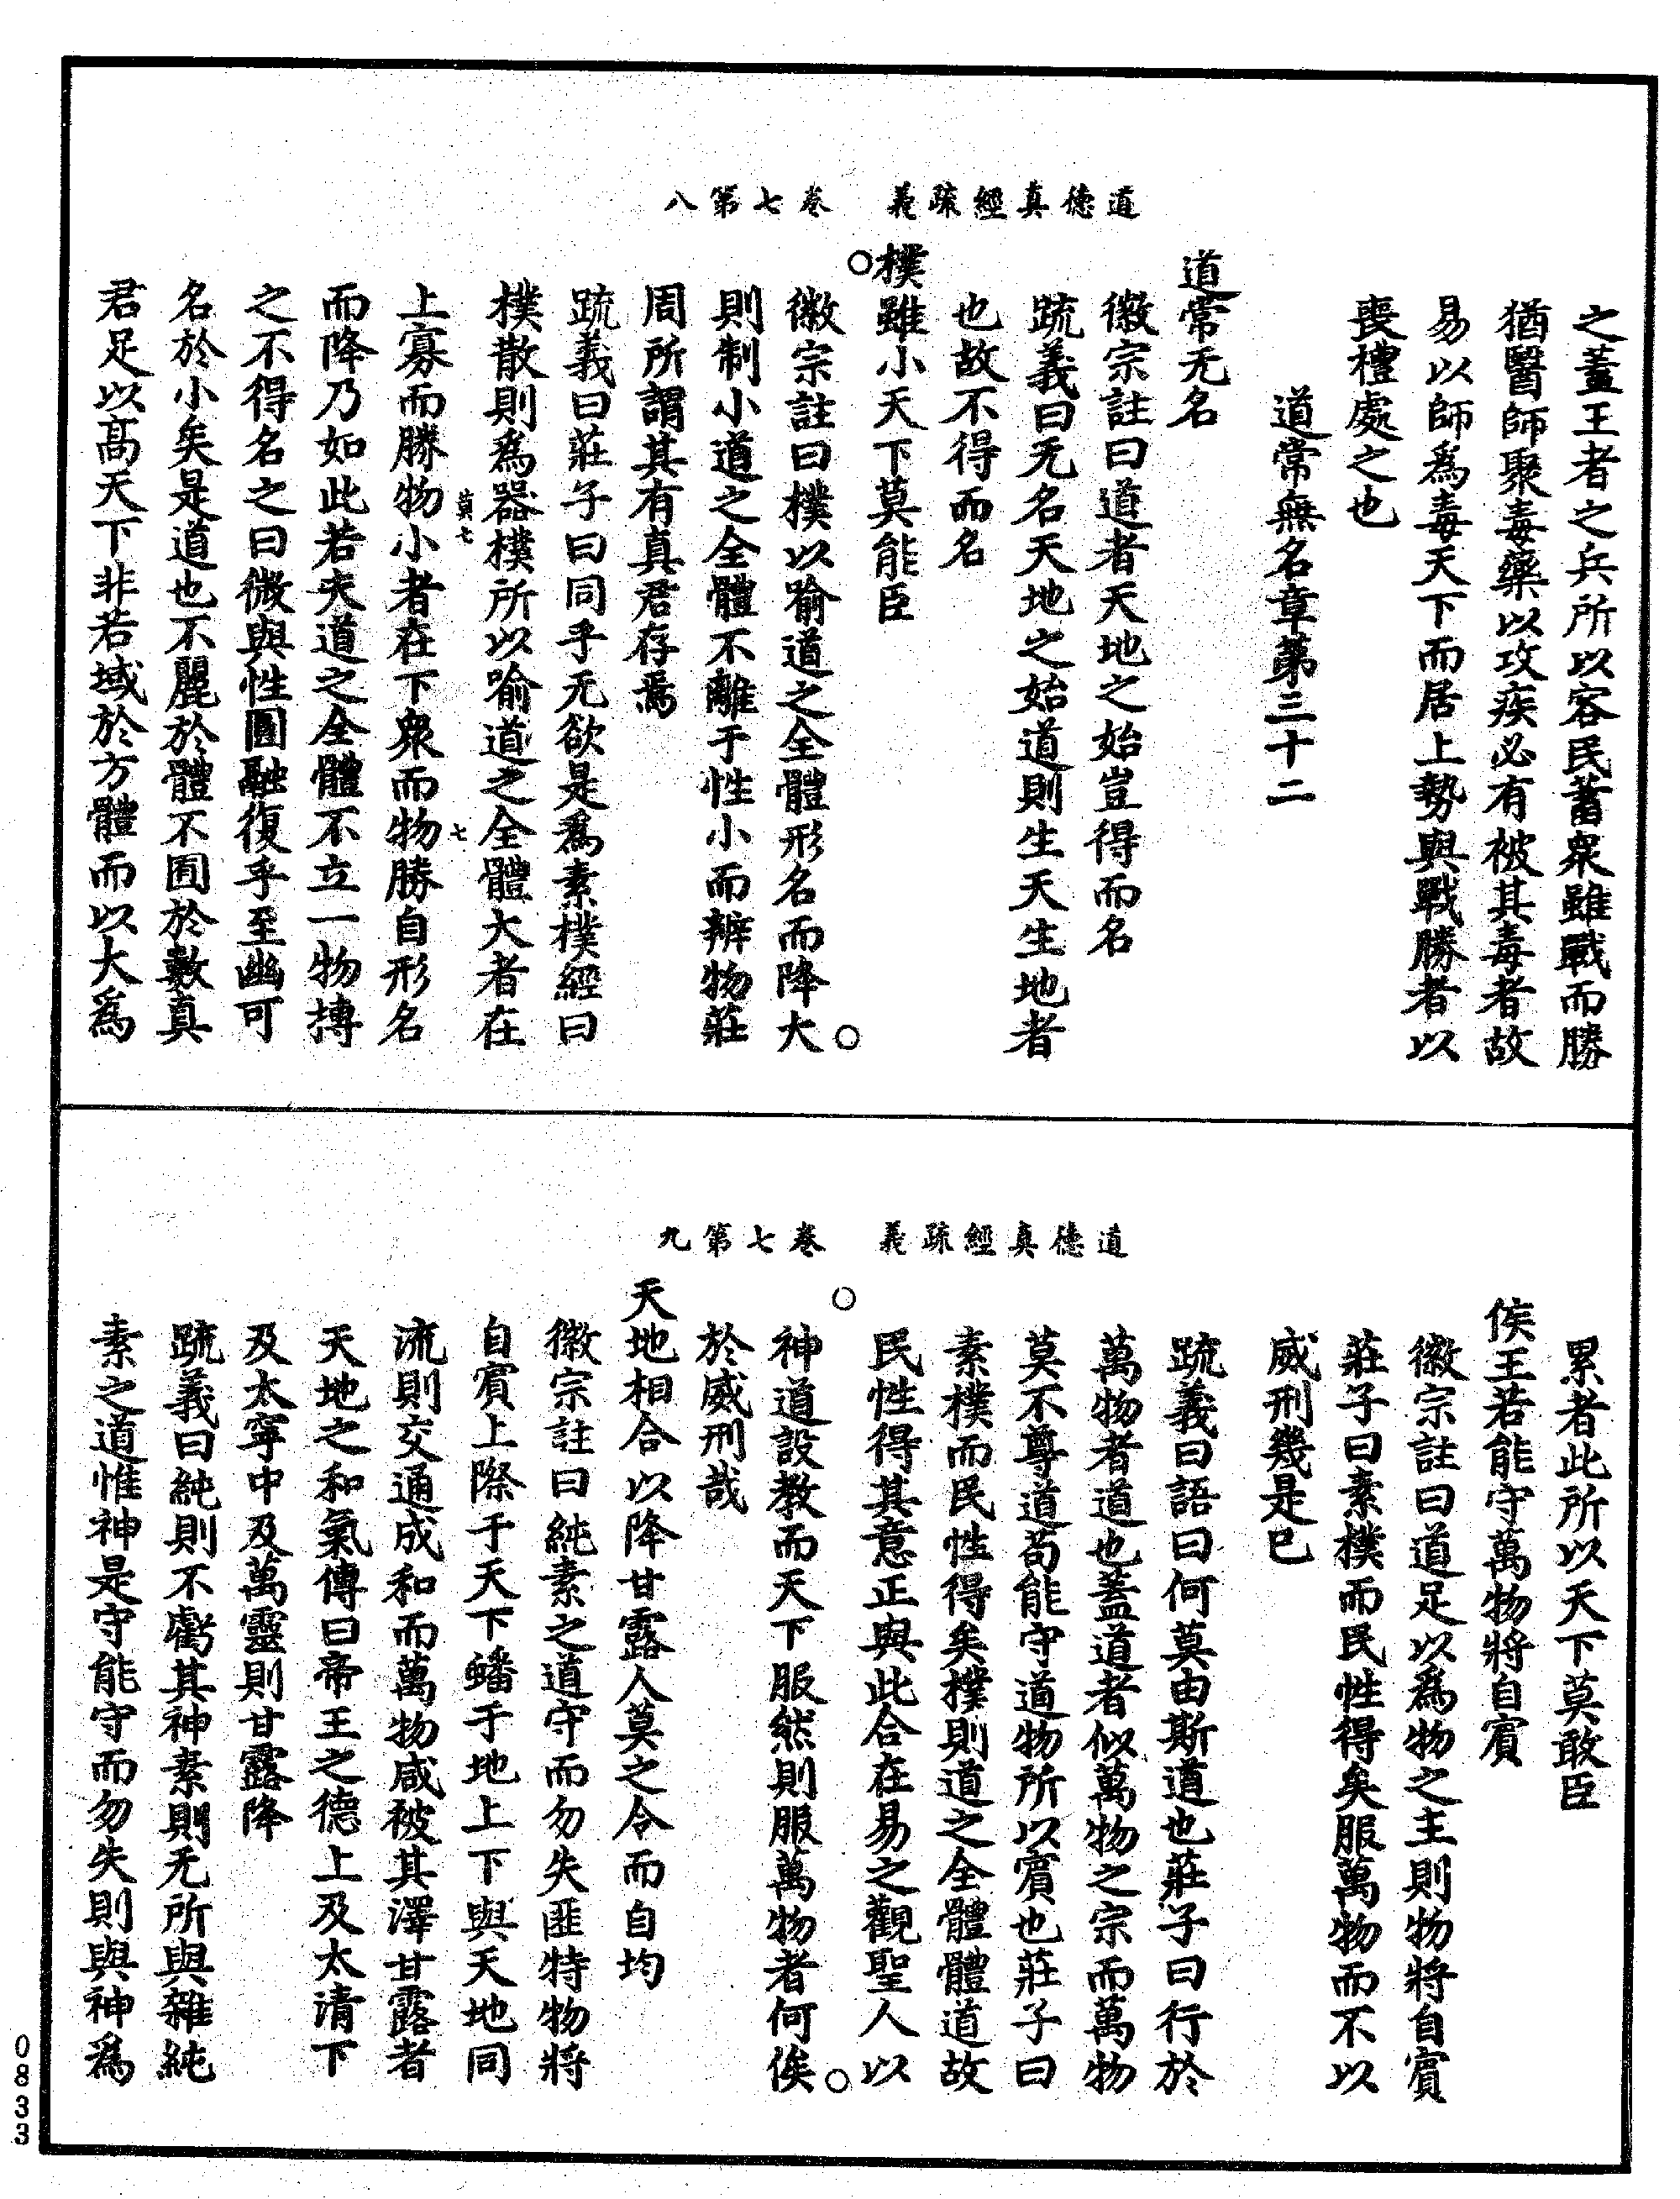 道德真經疏義　卷七第八
之蓋王者之兵所以容民蓄衆雖戰而勝
猶醫師聚毒藥以攻疾必有被其毒者故
易以師爲毒天下而居上勢與戰勝者以
喪禮處之也
道常無名章第三十二
道常无名
徽宗註曰道者天地之始豈得而名
疏義曰无名天地之始道則生天生地者
也故不得而名
樸雖小天下莫能臣
徽宗註曰樸以喻道之全體形名而降大
則制小道之全體不離于性小而辨物莊
周所謂其有真君存焉
疏義曰莊子曰同乎无欲是爲素樸經曰
樸散則爲器樸所以喻道之全體大者在
莫七　七
上寡而勝物小者在下衆而物勝自形名
而降乃如此若夫道之全體不立一物摶
之不得名之曰微與性圓融復乎至幽可
名於小矣是道也不麗於體不囿於數真
君足以高天下非若域於方體而以大爲
道德真經疏義　卷七第九
累者此所以天下莫敢臣
侯王若能守萬物將自賓
徽宗註曰道足以爲物之主則物將自賓
莊子曰素樸而民性得矣服萬物而不以
威刑幾是已
疏義曰語曰何莫由斯道也莊子曰行於
萬物者道也蓋道者似萬物之宗而萬物
莫不尊道苟能守道物所以賓也莊子曰
素樸而民性得矣樸則道之全體體道故
民性得其意正與此合在易之觀聖人以
神道設教而天下服然則服萬物者何俟
於威刑哉
天地相合以降甘露人莫之令而自均
徽宗註曰純素之道守而勿失匪特物將
自賓上際于天下蟠于地上下與天地同
流則交通成和而萬物咸被其澤甘露者
天地之和氣傳曰帝王之德上及太清下
及太寧中及萬靈則甘露降
疏義曰純則不虧其神素則无所與雜純
素之道惟神是守能守而勿失則與神爲
0833